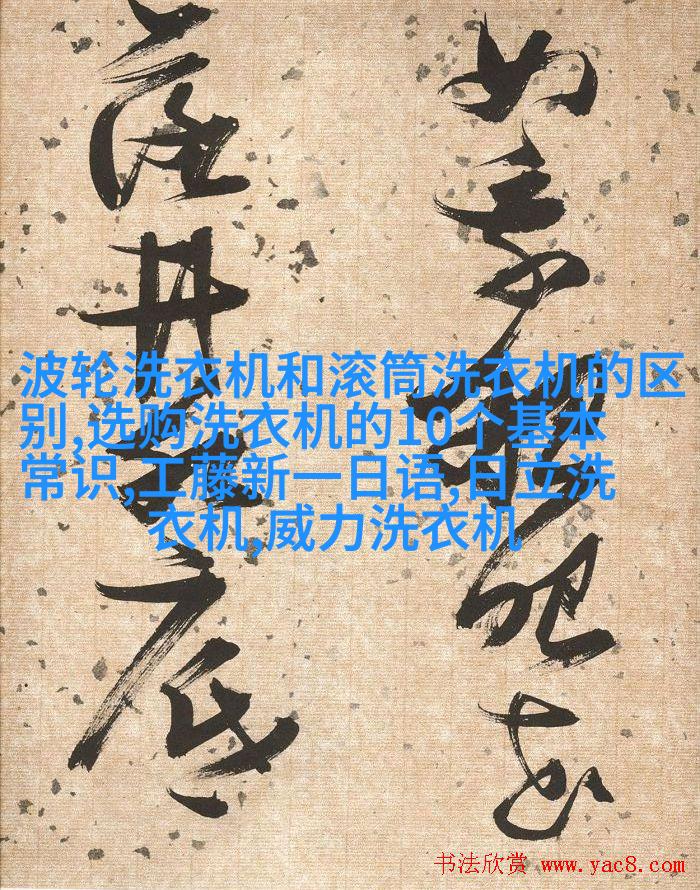 如
井
底
波轮洗衣机和滚筒洗衣机的区
别,选购洗衣机的10个基本
常识,工藤新一日语,日立洗
衣机,威力洗衣机
书法欣赏 www.yac8.com